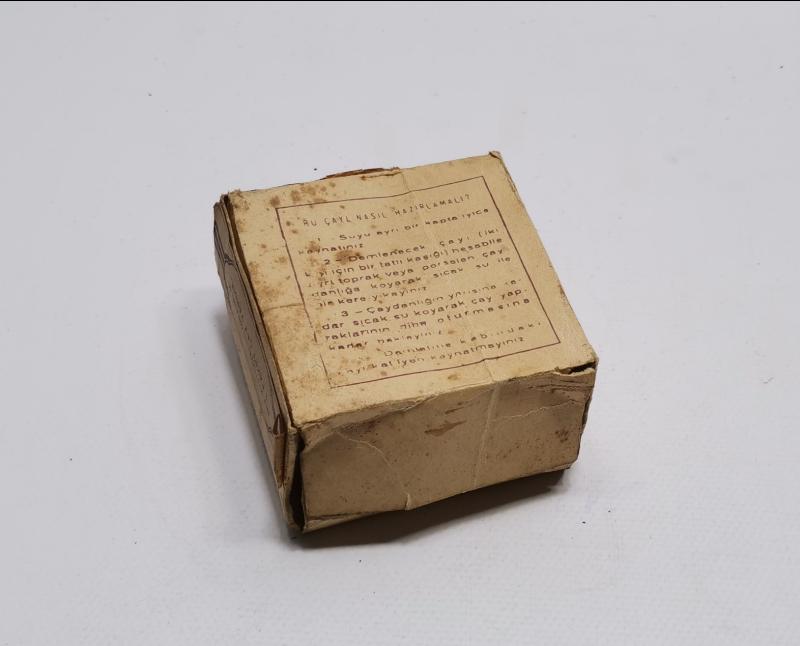 BU ÇAYI NASIL HAZIRLAMALI?
1 - Suyu ayrı bir kapta iyice
kaynatınız
2 - Demlenecek çayı (iki
kişi için bir tatlı kaşığı) hesabile
toprak veya porselen çay
danlığa koyarak sıcak su ile
bir kere yıkayınız
3 - Çaydanlığın yarısına ka
dar sıcak su koyarak çay yap.
raklarının dibe oturmasına
kadar bekleyiniz
Demleme kabındaki
çayı kat'iyen kaynatmayınız